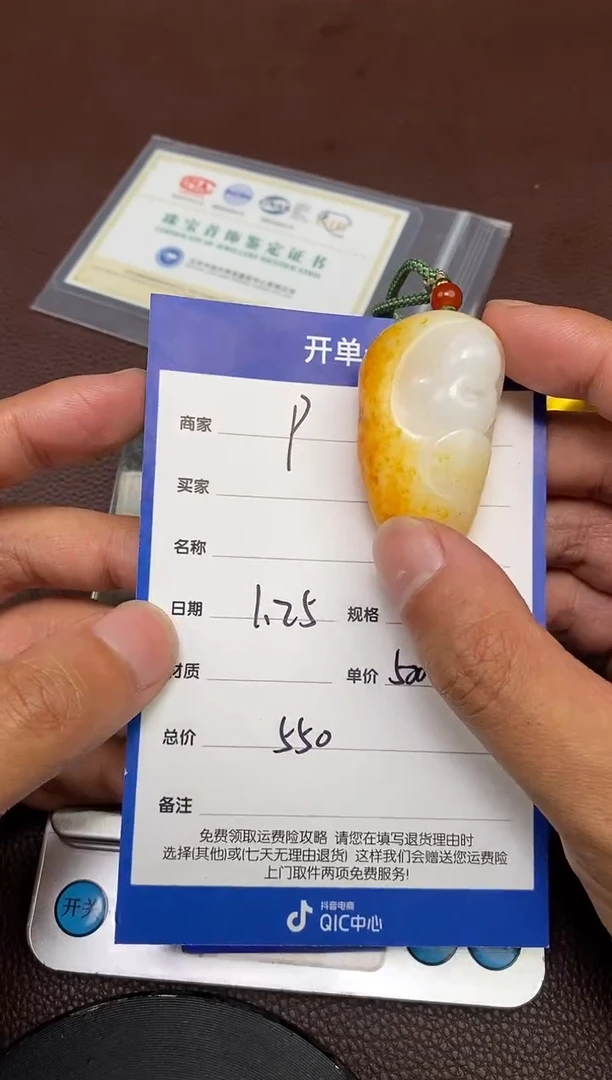 珠宝首饰鉴定证书
CERTIFICATE OF JEWELLERY IDENTIFICATION
开单
商家 P
买家
名称
日期 1.25 规格
材质 单价 500
总价 550
备注
免费领取运费险攻略 请您在填写退货理由时
选择(其他)或(七天无理由退货) 这样我们会赠送您运费险
上门取件两项免费服务!
抖音电商
QIC中心
开关